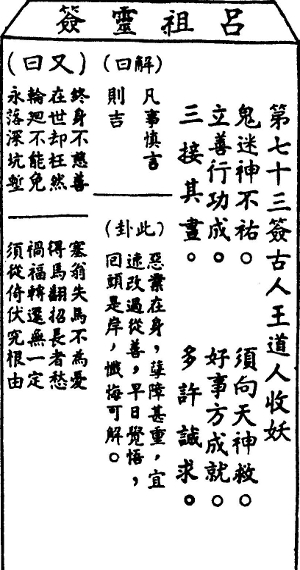 呂祖靈簽
第七十三簽古人王道人收妖
鬼迷神不祐。 須向天神救。
立善行功成。 好事方成就。
三接其晝。 多許誠求。
(解曰)
凡事慎言
則吉
(此卦)
惡業在身,孽障甚重,宜
速改過從善,早日覺悟,
回頭是岸,懺悔可解。
(又曰)
終身不慈善
在世却枉然
輪廻不能免
永落深坑塹
塞翁失馬不為憂
得馬翻招長者愁
禍福轉還無一定
須從倚伏究根由